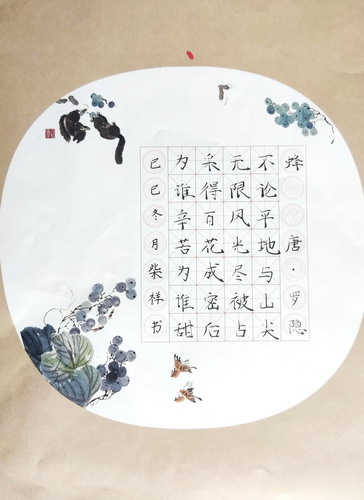 蜂 唐·罗隐
不论平地与山尖
无限风光尽被占
采得百花成密后
为谁辛苦为谁甜
己巳冬月柴祥书